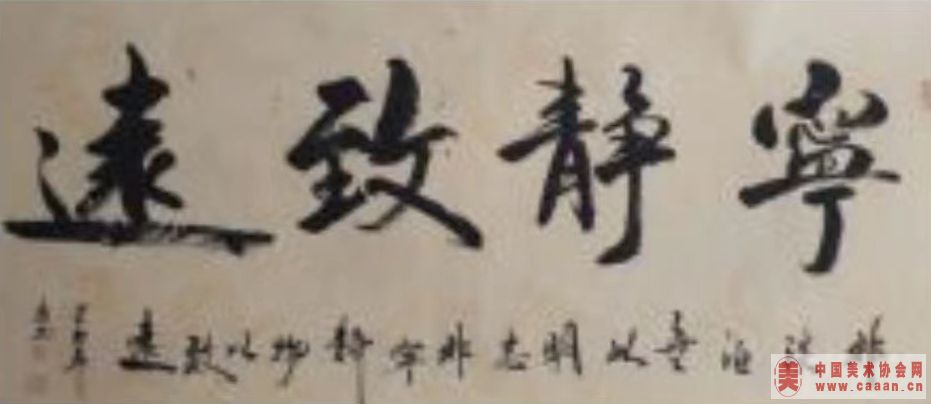 寧靜致遠
非淡泊無以明志非寧靜物以致遠
美 中国美术协会网
www.caaan.cn